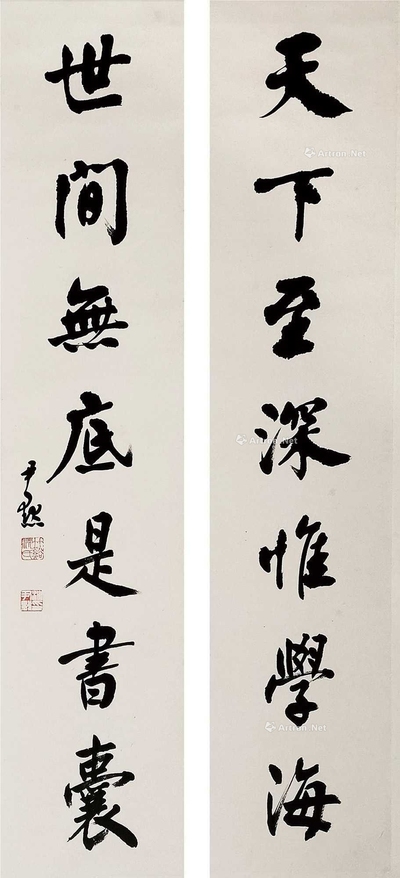 天下至深惟學海
世間無底是書囊
尹默
Artron.Net
Artron.Net
Artron.Net